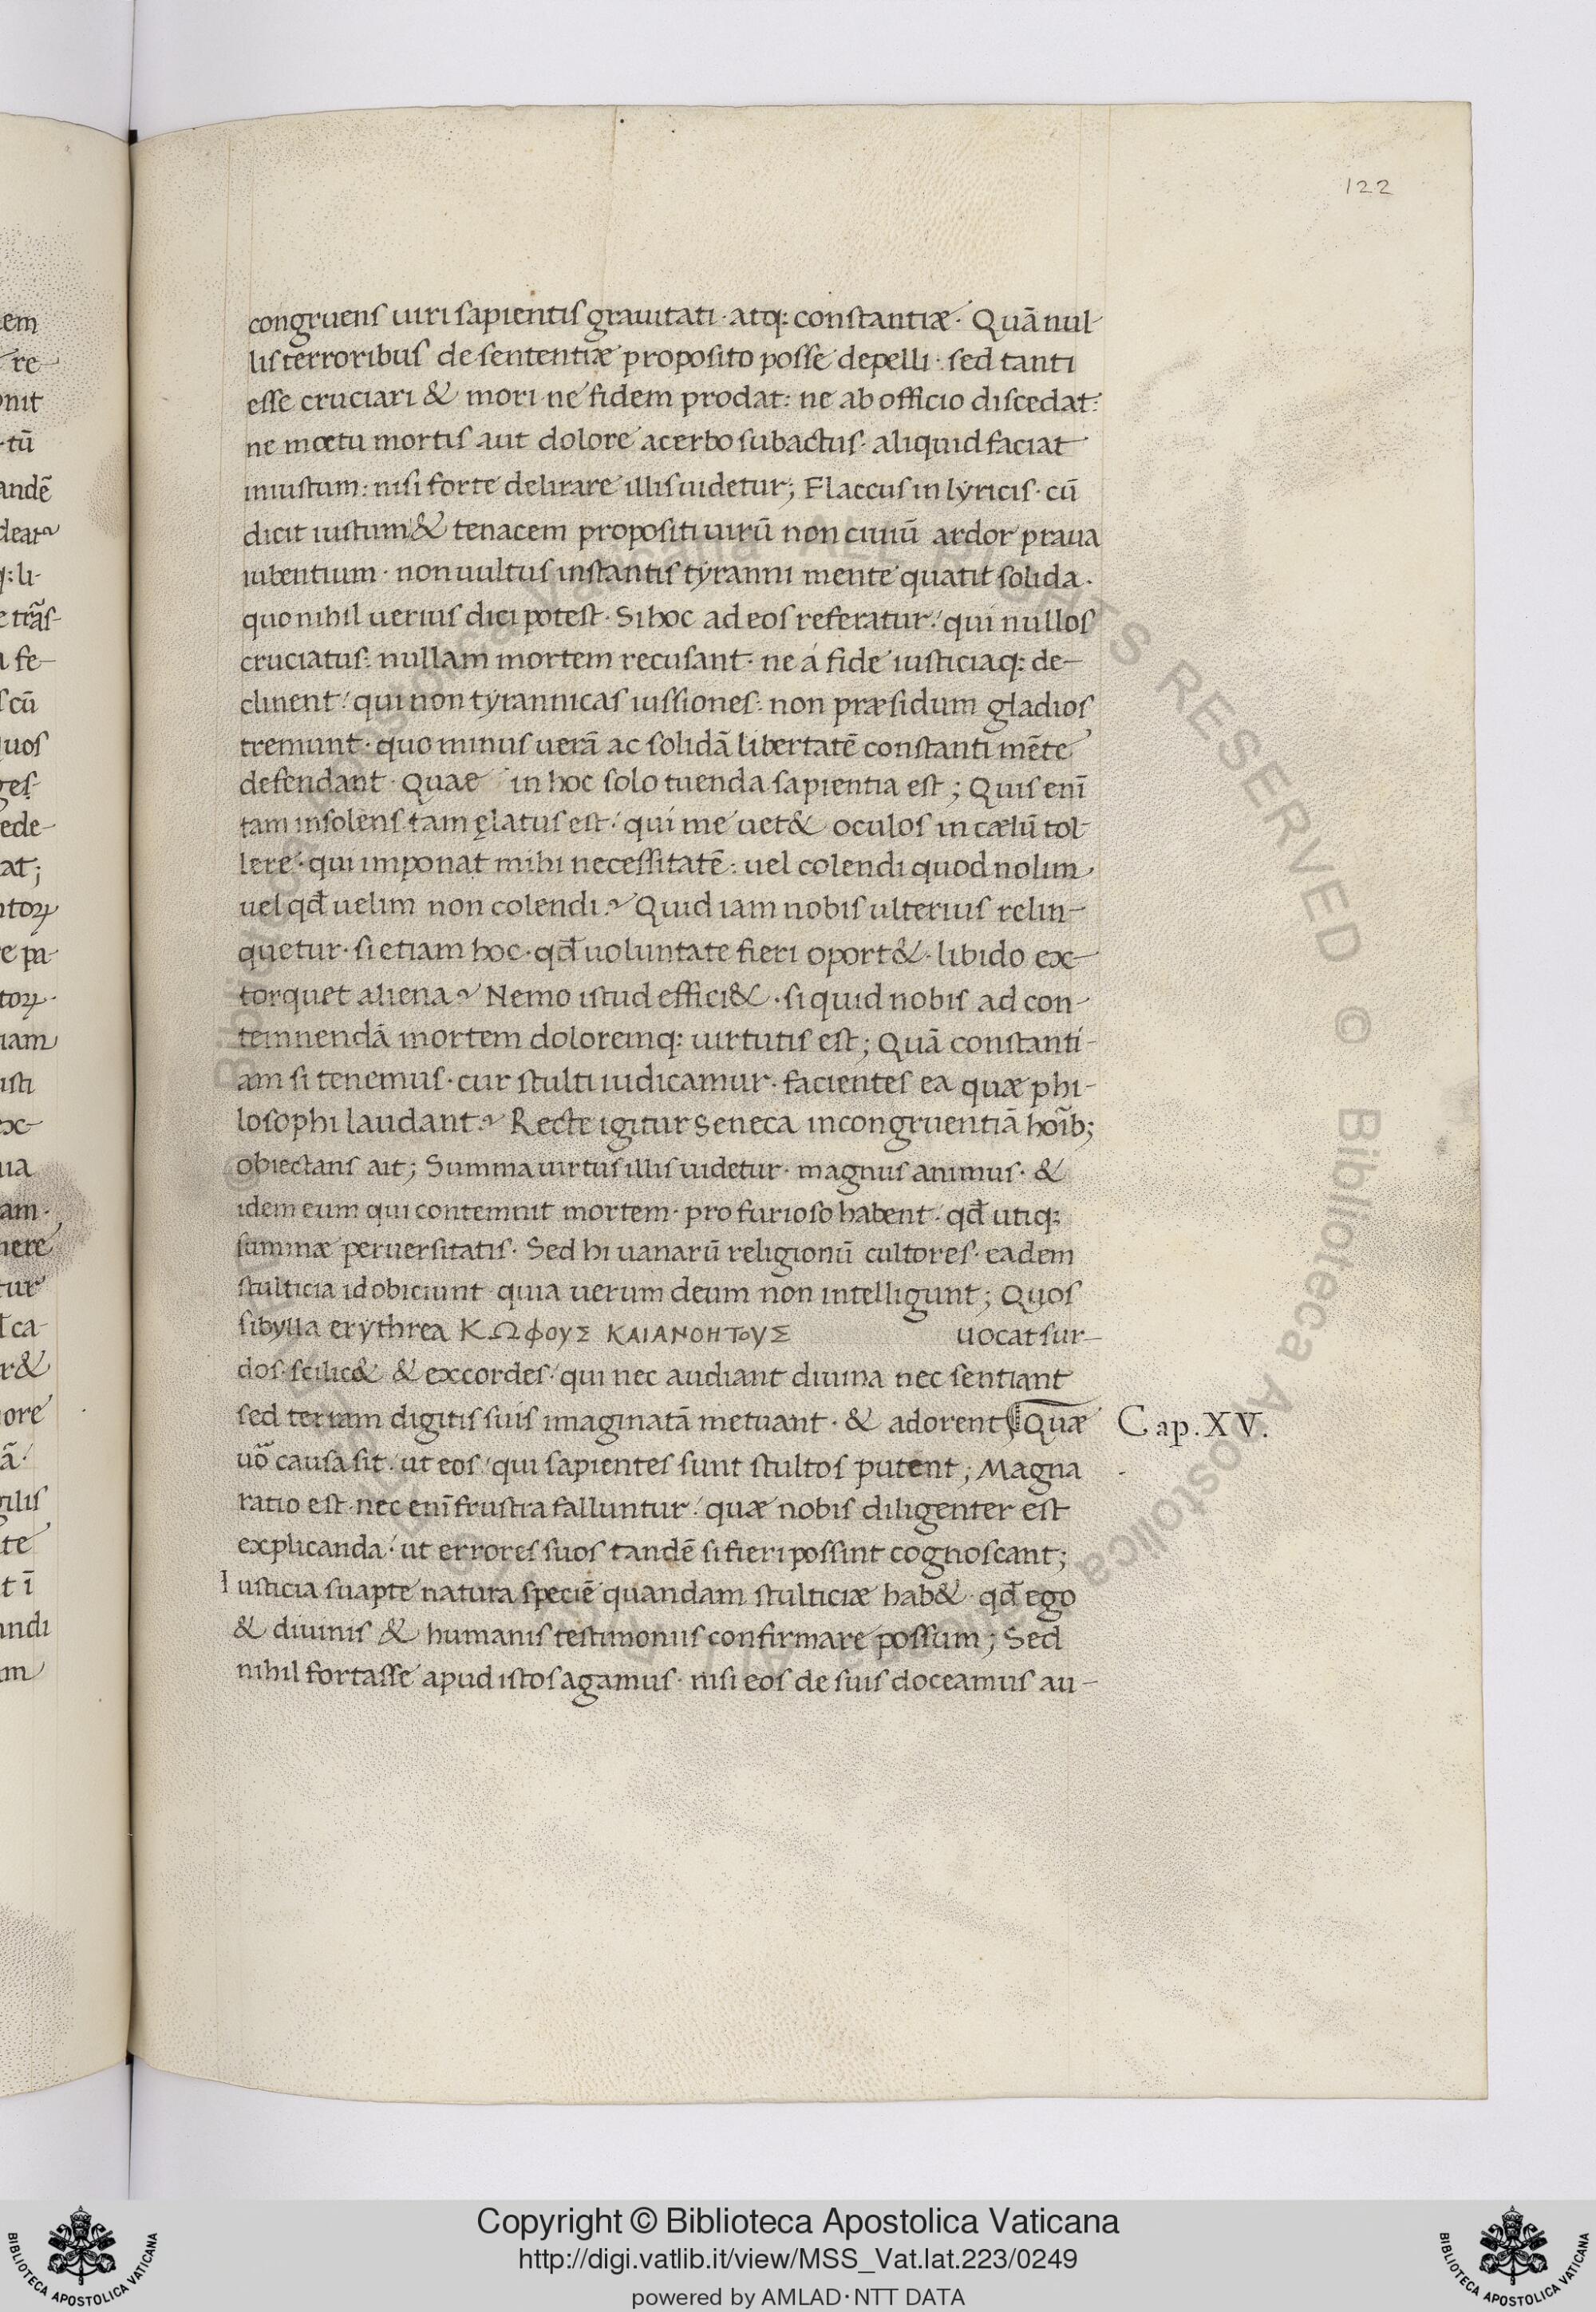 122
congruens uiri sapientis grauitati · atq: constantiæ · Quā nul
lis terroribus de sententiæ proposito posse depelli · sed tanti
esse cruciari & mori ne fidem prodat: ne ab officio discedat:
ne mœtu mortis aut dolore acerbo subactus · aliquid faciat
iniustum: nisi forte delirare illis uidetur; Flaccus in lyricis · cū
dicit iustum & tenacem propositi uirū non ciuiū ardor praua
iubentium · non uultus instantis tyranni mente quatit solida ·
quo nihil uerius dici potest · Si hoc ad eos referatur / qui nullos
cruciatus: nullam mortem recusant · ne á fide iusticiaq: de-
clinent / qui non tyrannicas iussiones: non præsidum gladios
tremunt · quo minus uerā ac solidā libertatē constanti mēte
defendant · Quae in hoc solo tuenda sapientia est; Quis enī
tam insolens tam ęlatus est / qui me uet& oculos in cælū tol
lere · qui imponat mihi necessitatē: uel colendi quod nolim
uel qđ uelim non colendi? Quid iam nobis ulterius relin-
quetur · si etiam hoc · qđ uoluntate fieri oport& · libido ex-
torquet aliena? Nemo istud effici& · si quid nobis ad con-
temnendā mortem doloremq: uirtutis est; Quā constanti-
am si tenemus · cur stulti iudicamur · facientes ea quæ phi-
losophi laudant? Recte igitur Seneca incongruentiā hoīb;
obiectans ait; Summa uirtus illis uidetur · magnus animus · &
idem eum qui contemnit mortem · pro furioso habent · qđ utiq:
summæ peruersitatis · Sed hi uanarū religionū cultores · eadem
stulticia id obiciunt quia uerum deum non intelligunt; Quos
sibylla erythrea ΚΩΦΟΥΣ ΚΑΙΑΝΟΗΤΟΥΣ uocat sur-
dos · scilic& & excordes / qui nec audiant diuina nec sentiant
sed terram digitis suis imaginatā metuant · & adorent Quæ Cap. XV.
uō causa sit / ut eos / qui sapientes sunt stultos putent; Magna
ratio est · nec enī frustra falluntur / quæ nobis diligenter est
explicanda / ut errores suos tandē si fieri possint cognoscant;
Iusticia suapte natura speciē quandam stulticiæ hab& · qđ ego
& diuinis & humanis testimoniis confirmare possum; Sed
nihil fortasse apud istos agamus · nisi eos de suis doceamus au-
Copyright © Biblioteca Apostolica Vaticana
http://digi.vatlib.it/view/MSS_Vat.lat.223/0249
powered by AMLAD·NTT DATA